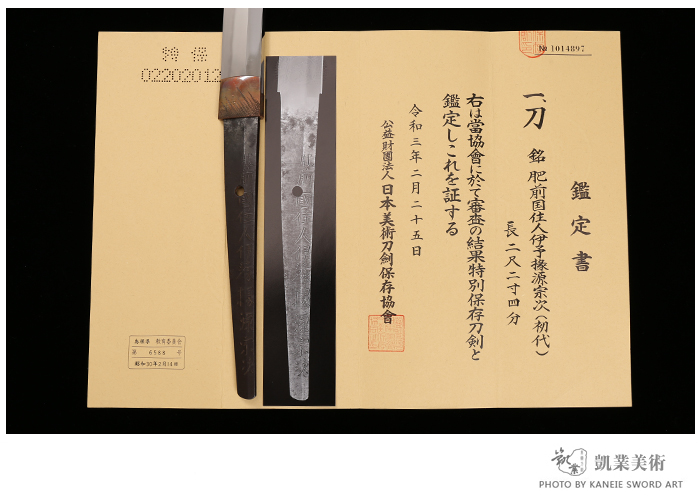 鑑定書
一、刀 銘 肥前国住人伊予掾源宗次(初代)
長 二尺二寸四分
右は當協會に於て審査の結果特別保存刀剣と
鑑定しこれを証する
令和三年二月二十五日
公益財團法人 日本美術刀剣保存協會
№ 1014897
02202012
第 6588 号
昭和30年2月14日
凱業美術
PHOTO BY KANEIE SWORD ART